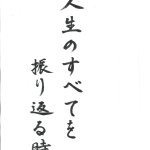 人生のすべてを
振り返る時